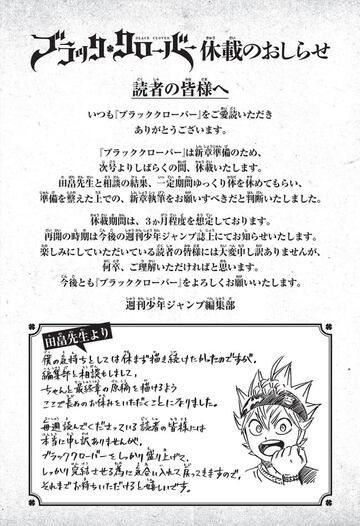 BLACK CLOVER
ブラッククローバー 休載のおしらせ
読者の皆様へ
いつも『ブラッククローバー』をご愛読いただき
ありがとうございます。
『ブラッククローバー』は新章準備のため、
次号よりしばらくの間、休載いたします。
田畠先生と相談の結果、一定期間ゆっくり体を休めてもらい、
準備を整えた上での、新章執筆をお願いすべきだと判断いたしました。
休載期間は、3か月程度を想定しております。
再開の時期は今後の週刊少年ジャンプ誌上にてお知らせいたします。
楽しみにしていただいている読者の皆様には大変申し訳ありませんが、
何卒、ご理解いただければと思います。
今後とも『ブラッククローバー』をよろしくお願いいたします。
週刊少年ジャンプ編集部
田畠先生より
僕の気持ちとしては休まず描き続けたかったのですが、
編集部と相談もしまして、
ちゃんと最終章の原稿を描けるよう
ここで長めのお休みをいただくことになりました。
毎週読んでくださっている読者の皆様には
本当に申し訳ありませんが、
ブラッククローバーをしっかり盛り上げて、
しっかり完結させる為に気合い入れて戻ってきますので、
それまでお待ちいただけると嬉しいです。